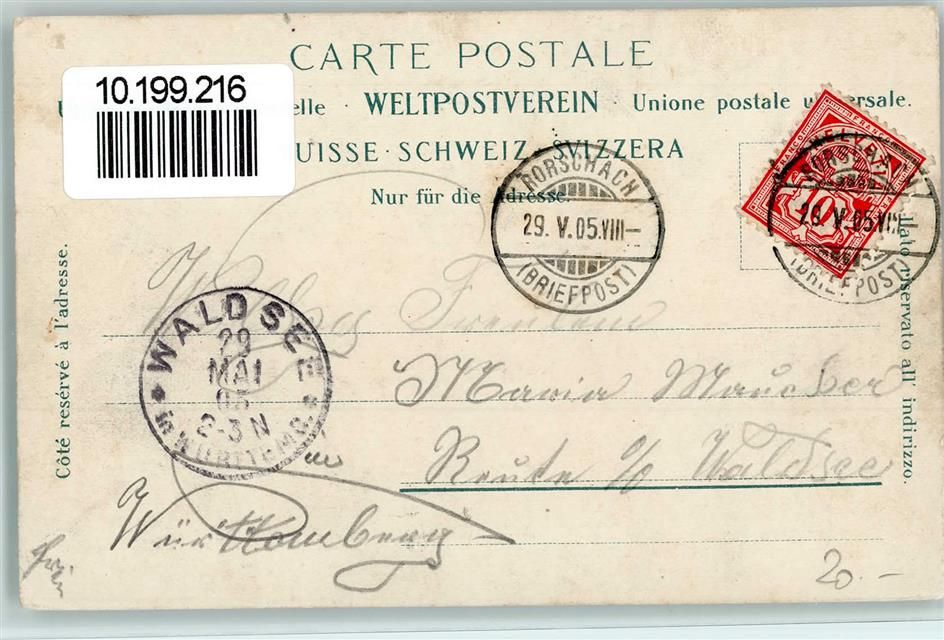 CARTE POSTALE
10.199.216
elle · WELTPOSTVEREIN · Unione postale u ersale.
UISSE · SCHWEIZ · SVIZZERA
Nur für die Adresse.
RORSCHACH
29. V. 05. VIII–
(BRIEFPOST)
FRANCO
HELVETIA
10
RORSCHACH
29. V. 05. VIII–
(BRIEFPOST)
Côté resérvé à l'adresse.
Lato riservato all' indirizzo.
WALDSEE
29
MAI
05
2-3 N
in WÜRTTEMG.
Fräulein
Maria Maucher
Reute b/ Waldsee
in
Württemberg
20.–